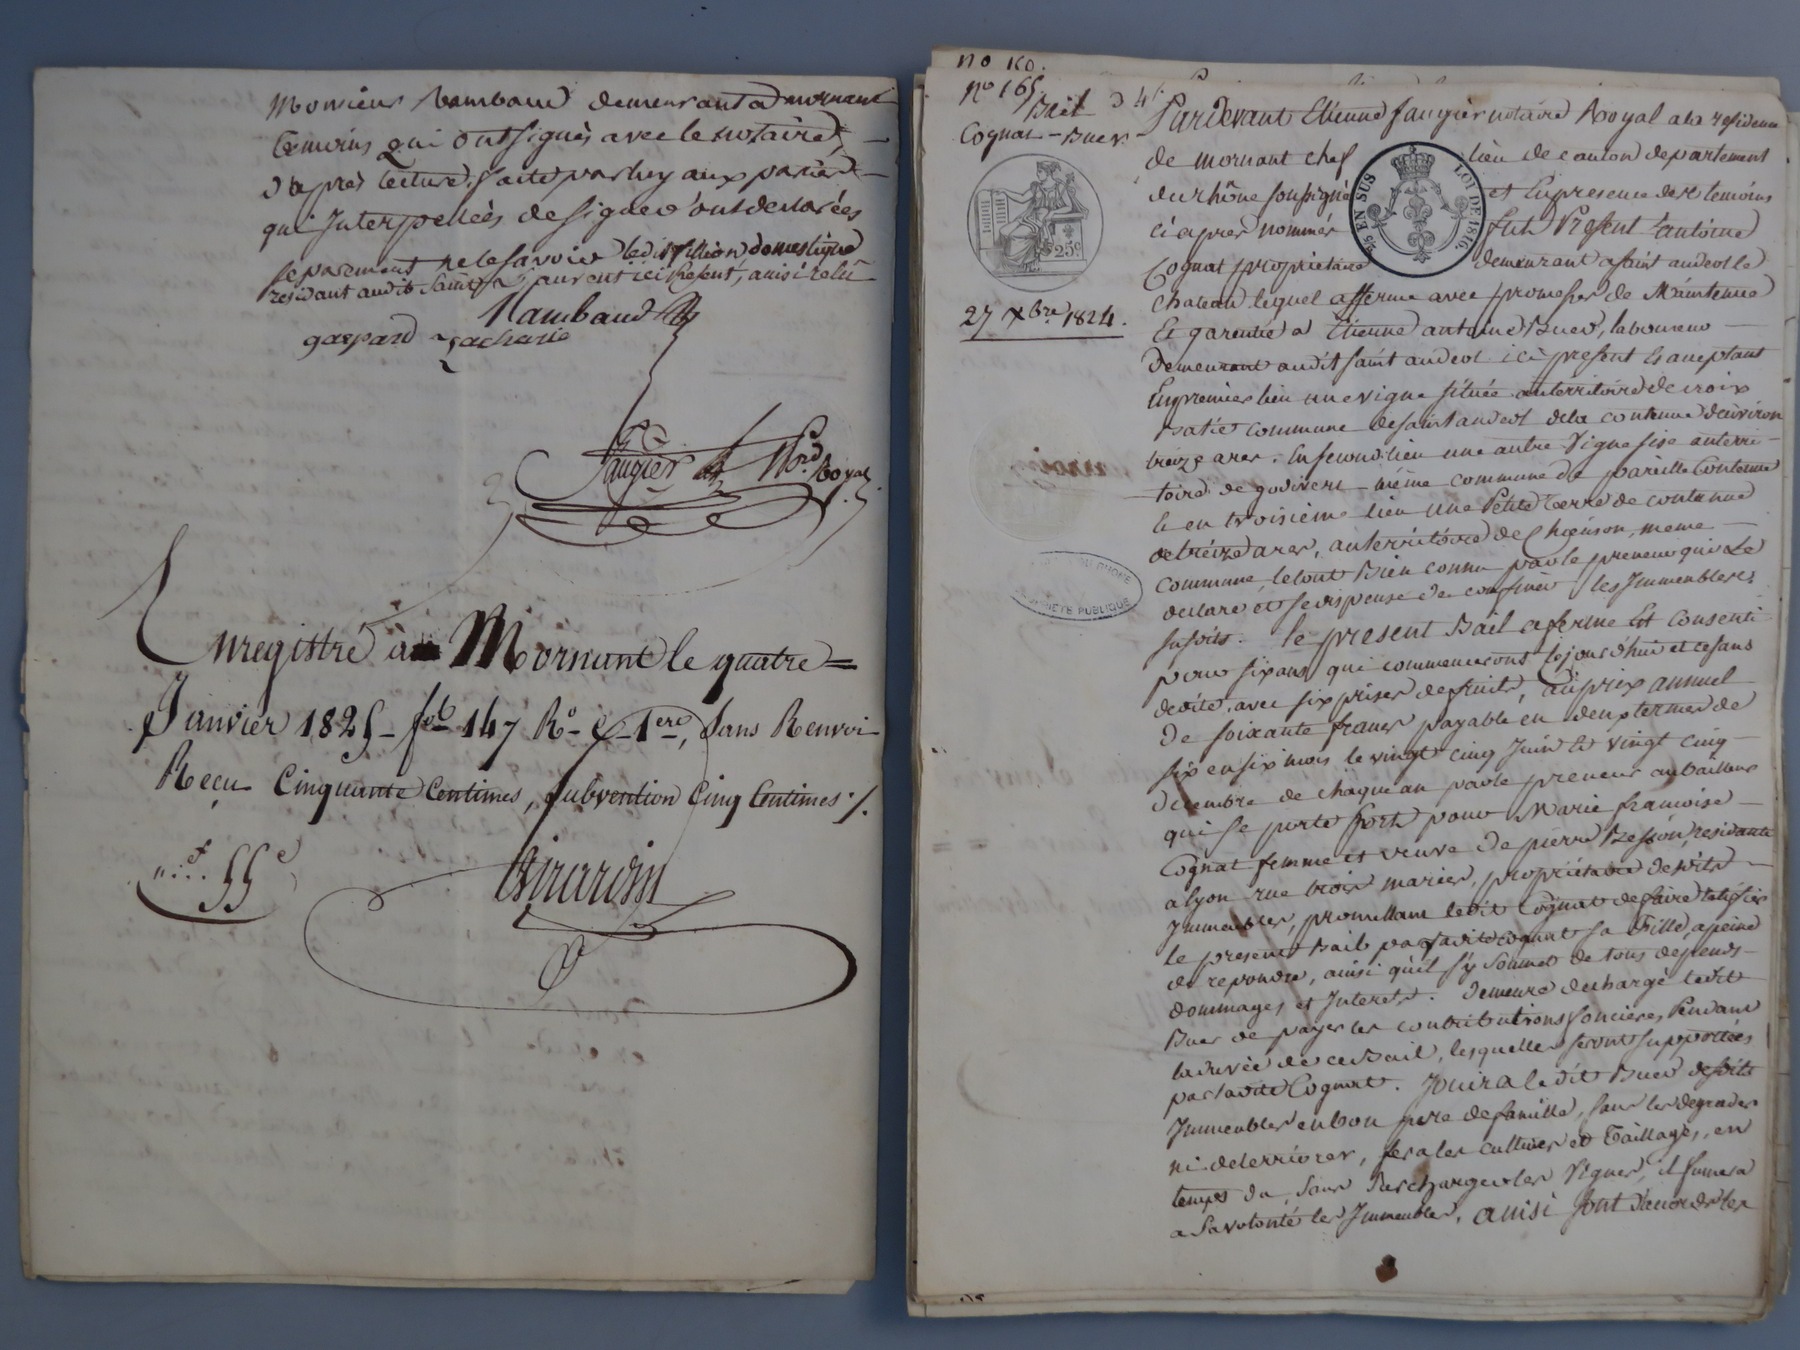 Monsieur Rambaud demeurant a mornant
temoins qui ont signés avec le notaire,
d'après lecture faite par luy aux parties
qui Interpellées de signer ont declarées
separement ne le savoir ledit fillion domestique
residant audit Saint aurent ici present, ainsi relu
Rambaud
gaspard zacharie
Faugier
Nre Royal
Enregistré à Mornant le quatre =
Janvier 1825 - fo 147 Ro C 1ere, Sans Renvoi
Reçu Cinquante Centimes, subvention Cinq Centimes ./.
55 c
Girardin
no 160.
no 165
Bail
Cognat - Buer
25c
27 Xbre 1824.
Pardevant Etienne faugier notaire Royal a la residence
de mornant chef lieu de canton departement
du rhône soussigné et En presence des temoins
ci après nommés fut Présent antoine
Cognat propriétaire demeurant a saint andeol le
chateau lequel afferme avec promesse de Maintenue
Et garentie a Etienne antoine Buer, laboureur
demeurant audit saint andeol ici present Et acceptant
En premier lieu une vigne située au territoire de croix
commune de saint andeol de la contenue d'environ
treize ares. En second lieu une autre Vigne sise au terri-
toire de godivert même commune de pareille Contenue
Et en troisième lieu une Petite terre de contenue
de treize ares, au territoire de même
commune, le tout Bien connu par le preneur qui Le
declare et se dispense de confiner les Immeubles
susdits. le present Bail a ferme Est consenti
pour six ans qui commenceront ce jourd'hui et cesans
de suite, avec six prises de fruits, au prix annuel
de soixante francs payable en deux termes de
six en six mois le vingt cinq Juin et vingt cinq
decembre de chaque an par le preneur au bailleur
qui se porte fort pour Marie francoise
Cognat femme et veuve de pierre Bession, residante
a lyon rue trois maries, propriétaire desdits
Immeubles, promettant ledit Cognat de faire ratifier
le present Bail par ladite cognat sa Fille, a peine
de repondre, ainsi qu'il s'y soumet de tous depends
dommages et Interets. demeure dechargé ledit
Buer de payer les contributions foncieres, Pendant
la durée de ce Bail, lesquelles seront supportées
par ladite Cognat. Jouira ledit Buer desdits
Immeubles en bon pere de famille, sans les degrader
ni deterriorer, fera les cultures et Taillages, en
temps du, sans Surcharger les Vignes, il fumera
a sa volonté les Immeubles, ainsi sont d'accord les
5/6 EN SUS LOI DE 1816
DU RHONE
PUBLIQUE